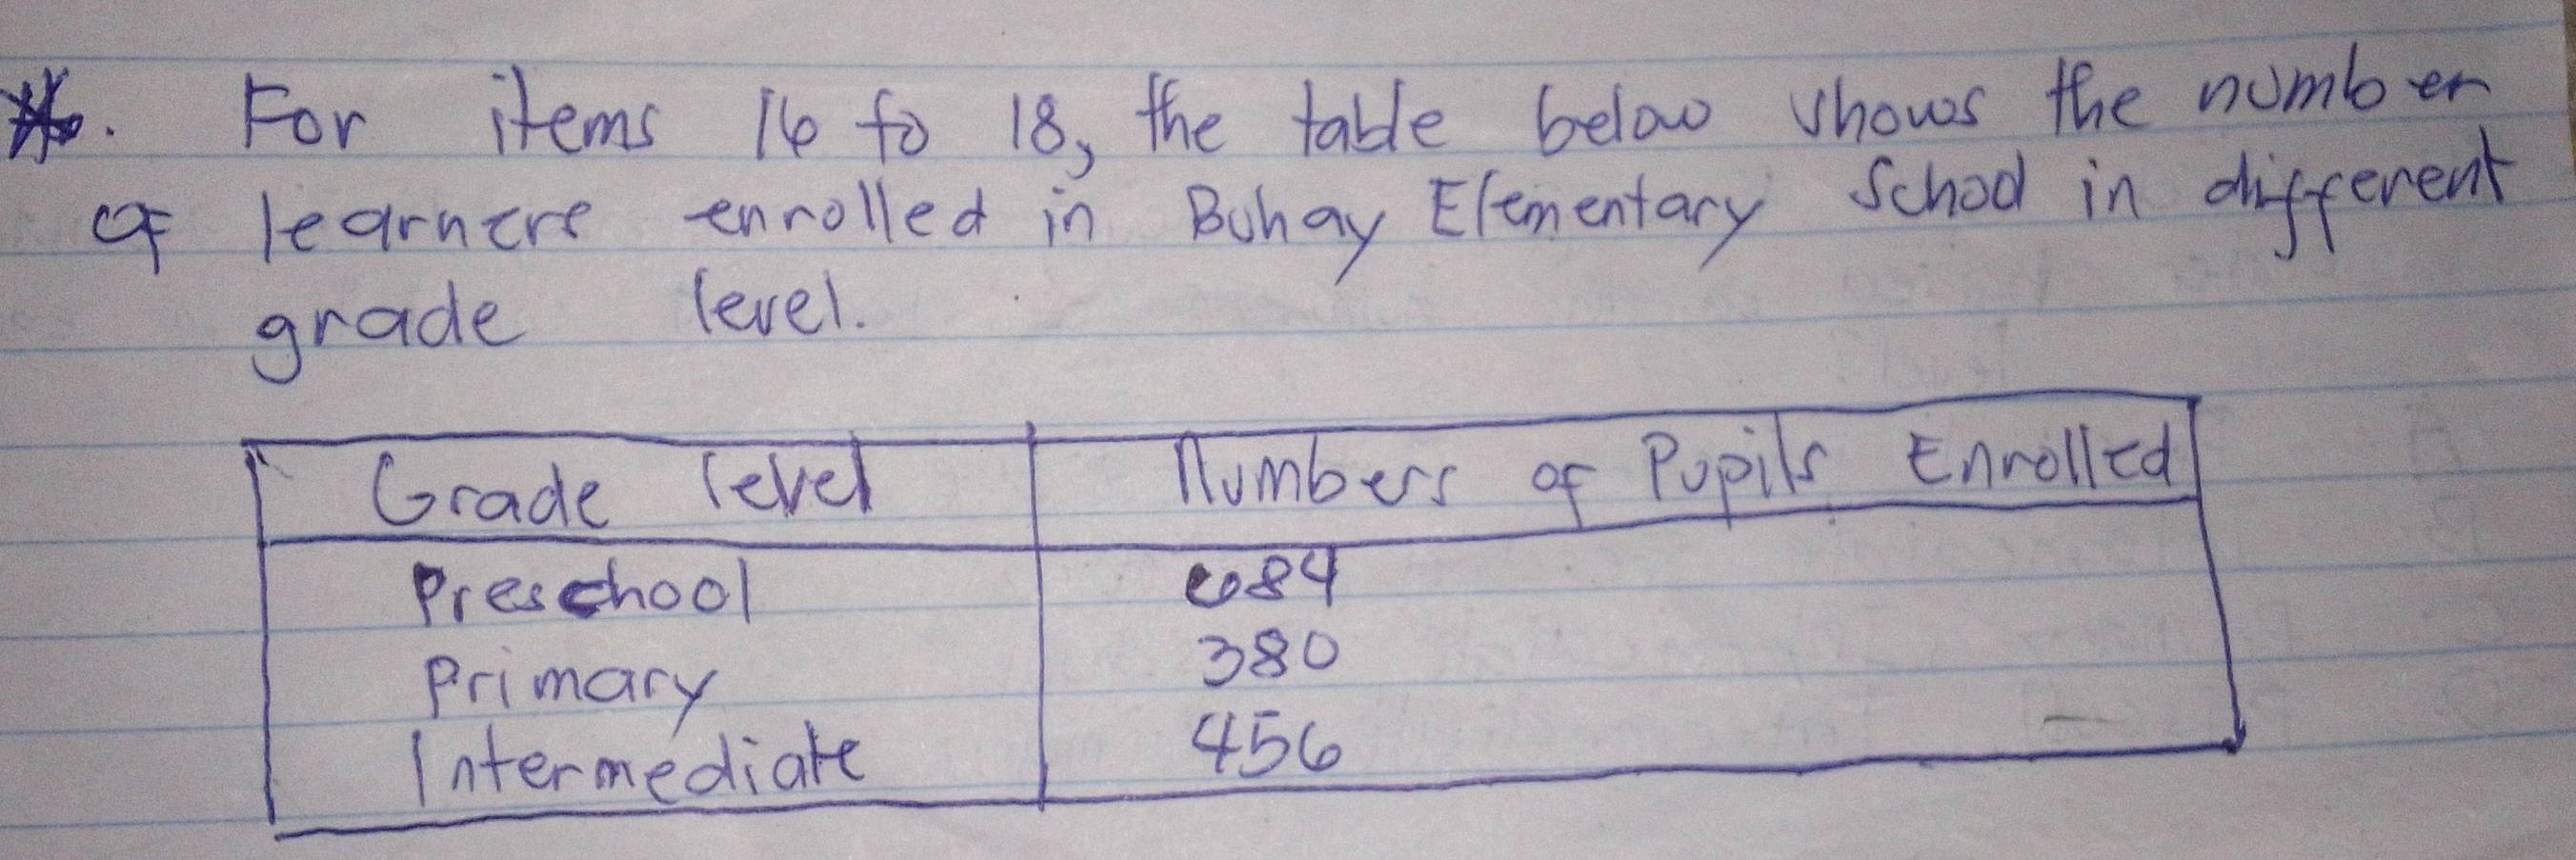 For items 16 to 18, the table below shows the number
of learners enrolled in Buhay Elementary School in different
grade level.
Grade level Numbers of Pupils Enrolled
Preschool 684
Primary 380
Intermediate 456